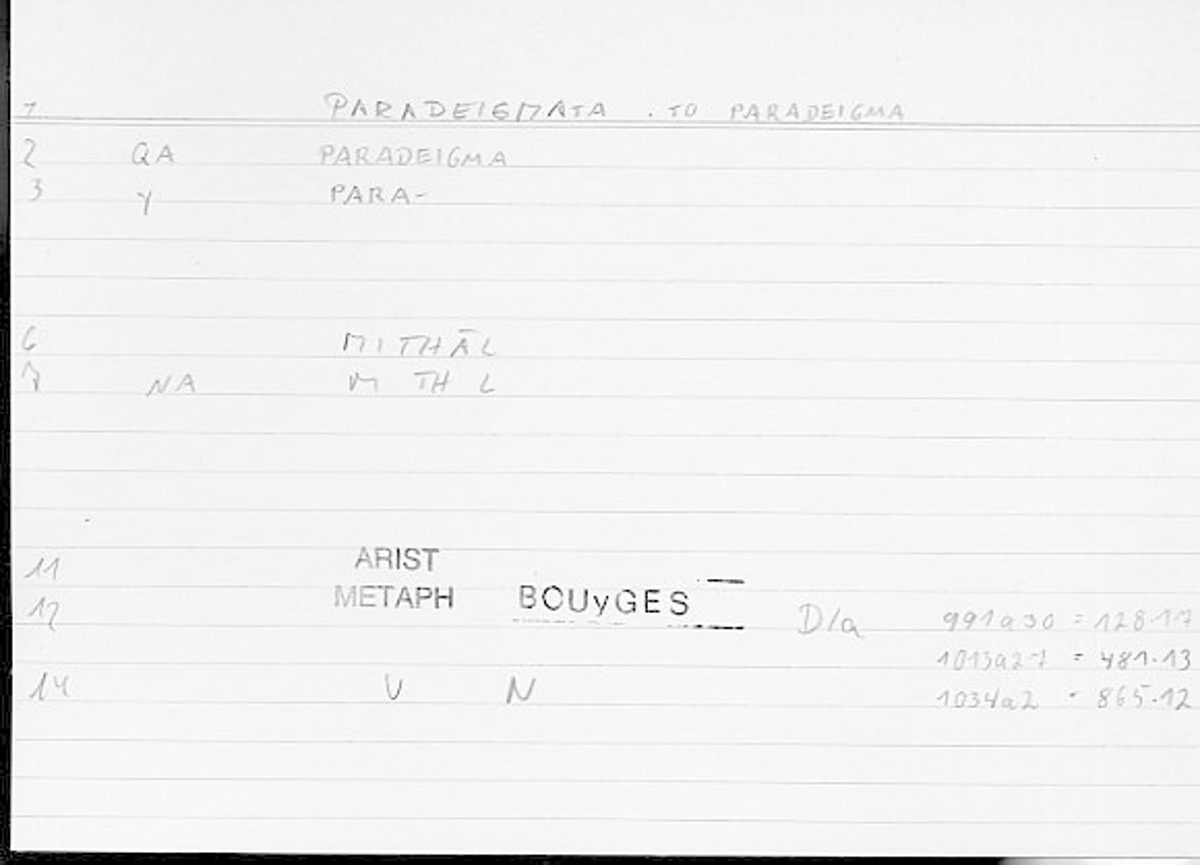 1 PARADEIGMATA . TO PARADEIGMA
2 QA PARADEIGMA
3 Y PARA-
6 MITHĀL
7 NA M TH L
11 ARIST
12 METAPH BOUyGES D/a 991a30 = 128.17
1013a27 = 481.13
14 V N 1034a2 = 865.12